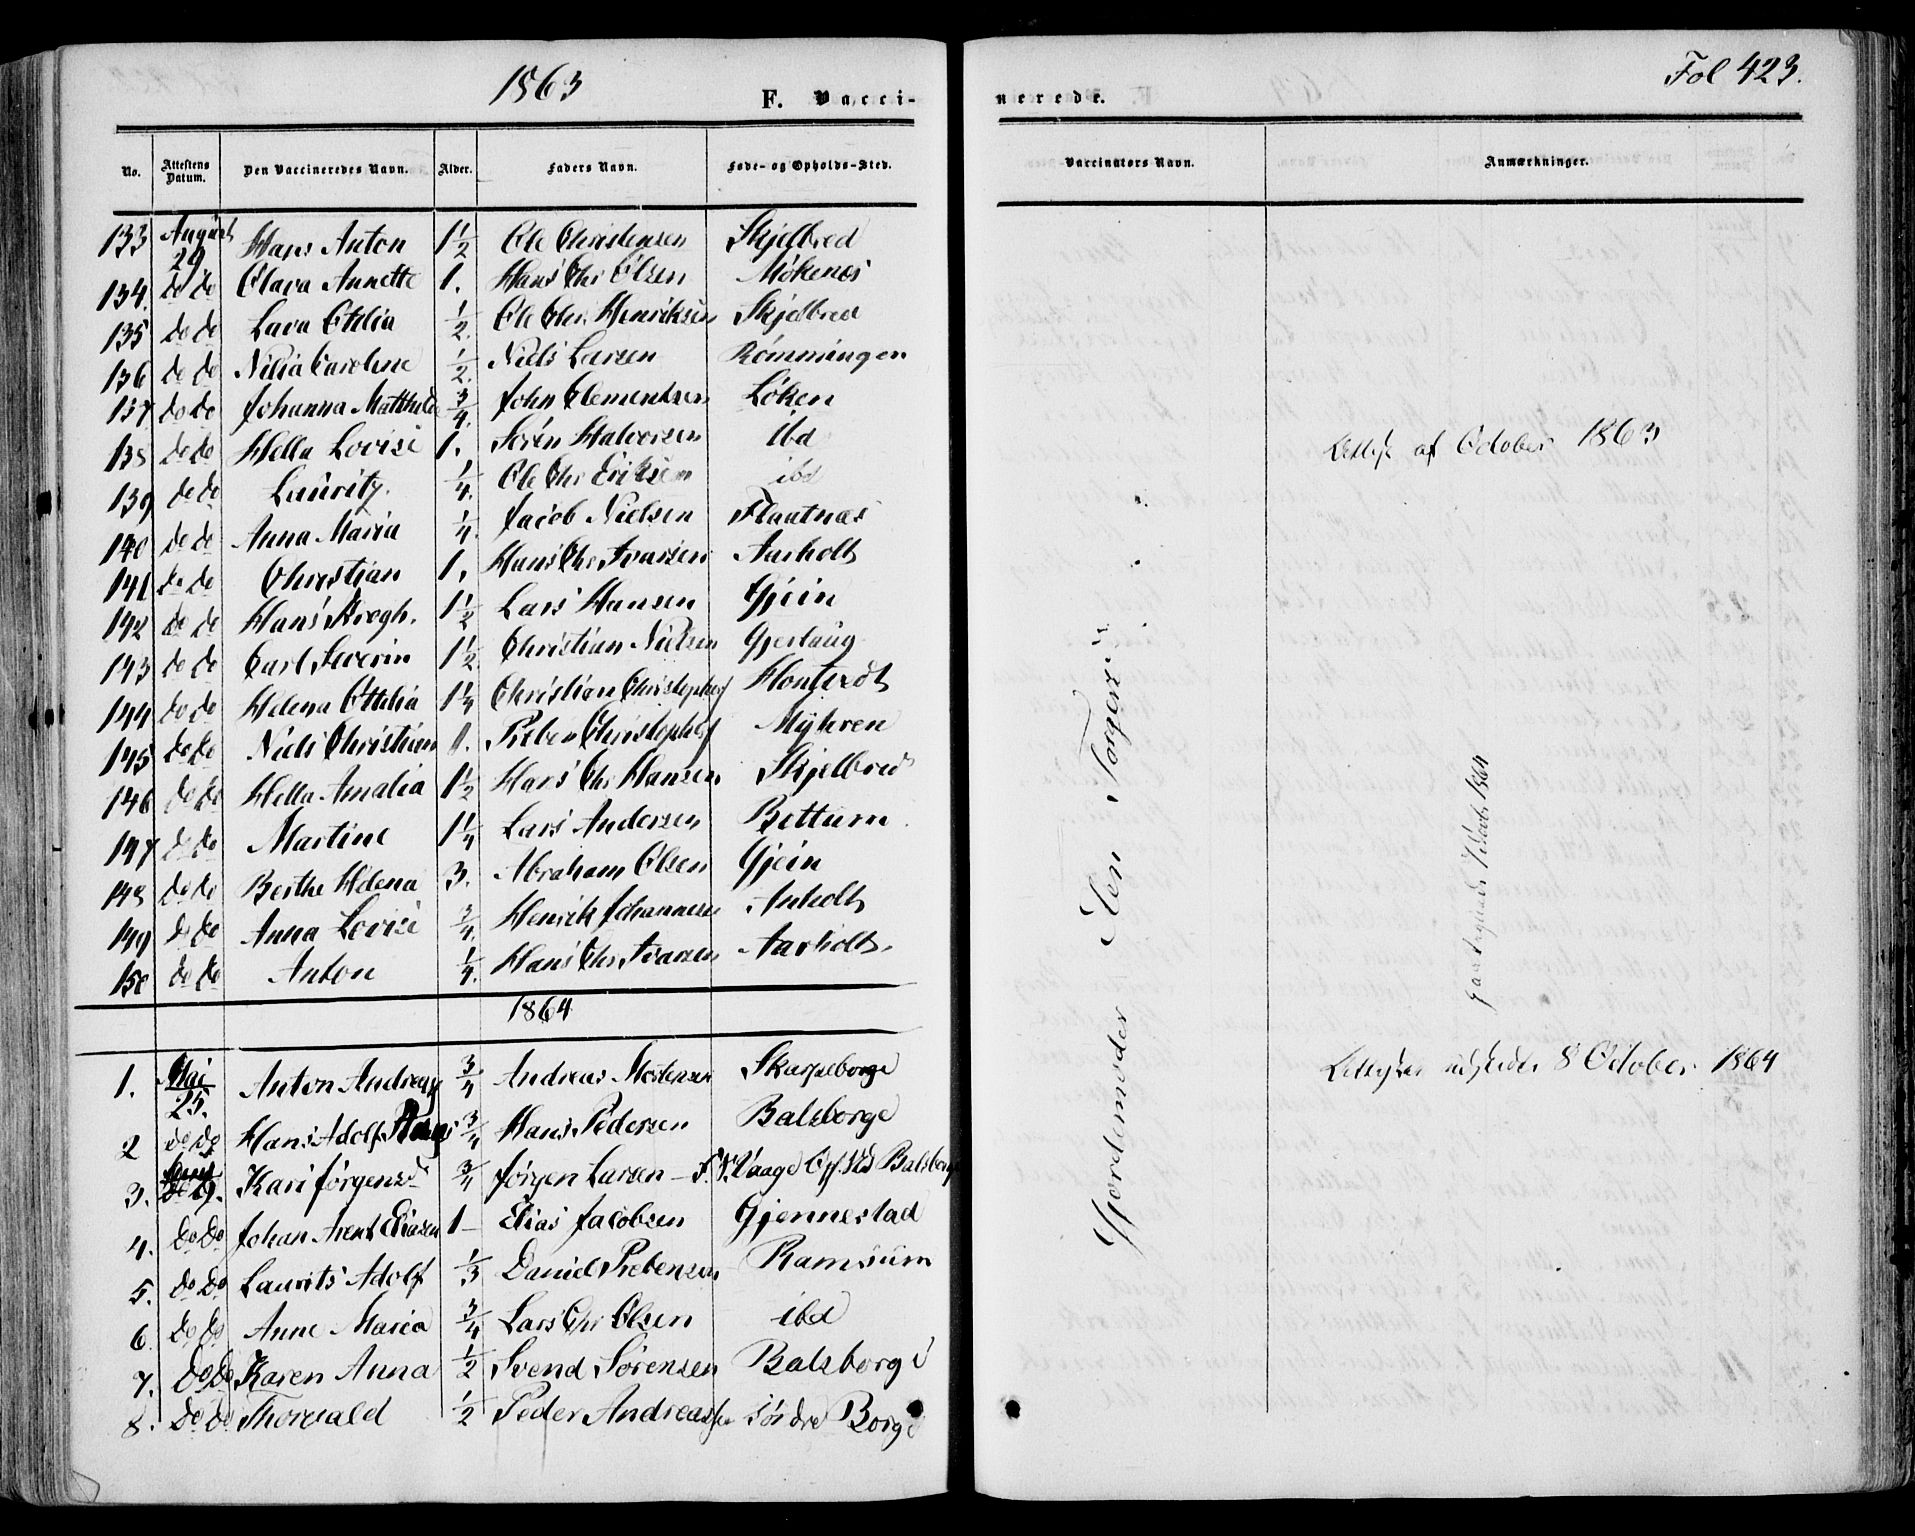 1863
F. Vacci-
No. Attestens Datum. Den Vaccineredes Navn. Alder. Faders Navn. Føde- og Opholds-Sted.
133 August 29 Hans Anton 1 1/2 Ole Christensen Skjelbred
134. do do Clara Annette 1. Hans Chr Olsen Møkenes
135 do do Lava Othlia 1/2. Ole Chr. Henriksen Skjelbred
136 do do Nilia Caroline 1/2. Niels Larsen Rømmingen
137 do do Johanna Matthilde 3/4. John Clementsen Løken
138 do do Hella Lovise 1. Søren Halvorsen ibd
139 do do Lauritz. 1/4. Ole Chr Eriksen ibd
140 do do Anna Maria 1/4. Jacob Nielsen Flaatnæs
141 do do Christian 1. Hans Chr Ivarsen Aarholt
142 do do Hans Kregh. 1 1/2 Lars Hansen Gjein
143 do do Carl Severin 1 1/2. Christian Nielsen Gjerlaug
144 do do Helena Ottilia 1 1/4 Christian Christophers
145 do do Niels Christian 1. Preben Christophers Myhren
146 do do Hella Amalia 1 1/2 Hans Chr Hansen Skjelbred
147 do do Martine 1 1/4 Lars Andersen Bettum.
148 do do Berthe Helena 3. Abraham Olsen Gjein
149 do do Anna Lovise 3/4. Henrik Johannesen Anholt
150 do do Anton 1/4. Hans Chr Ivarsen Aarholt.
1864
1. Mai 25. Anton Andreas 3/4 Andreas Mortensen Skarpeborge
2 do do Hans Adolf 3/4 Hans Pedersen Balsborge
3. 9. Kari Jørgensd 3/4 Jørgen Larsen – Vaage Balsborge
4. Do Do Johan Arent Eliasen 1– Elias Jacobsen Gjennestad
5. Do Do Laurits Adolf 1/3 Daniel Prebensen Ramsum
6 Do Do Anne Maria 3/4 Lars Chr Olsen ibd
7. Do Do Karen Anna 1/2 Svend Sørensen Balsborge
8. Do Do Thorvald 1/2 Peder Andreassen søndre Borge
Fol 423.
nerede.
Vaccinators Navn. Anmærkninger.
af October 1863
Gjordemoder Elen Torgers
1864
8 October 1864